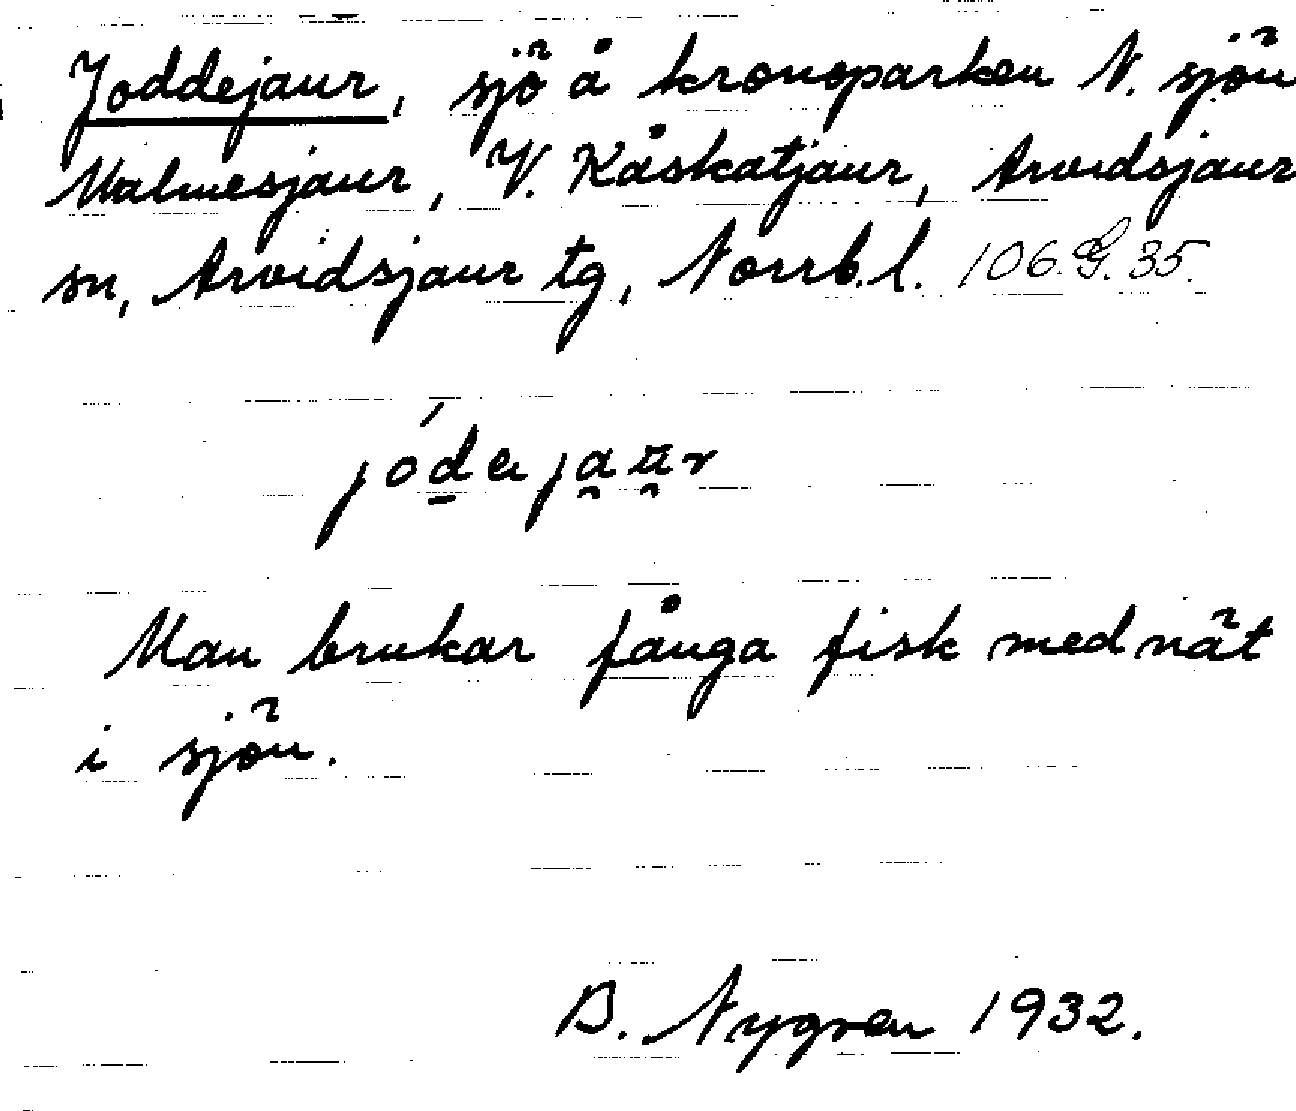 Joddejaur, sjö å kronoparken N. sjön
Malmesjaur, V. Kåskatjaur, Arvidsjaur
sn, Arvidsjaur tg, Norrb.l. 106.G.35.
Man brukar fånga fisk med nät
i sjön.
B. Nygren 1932.